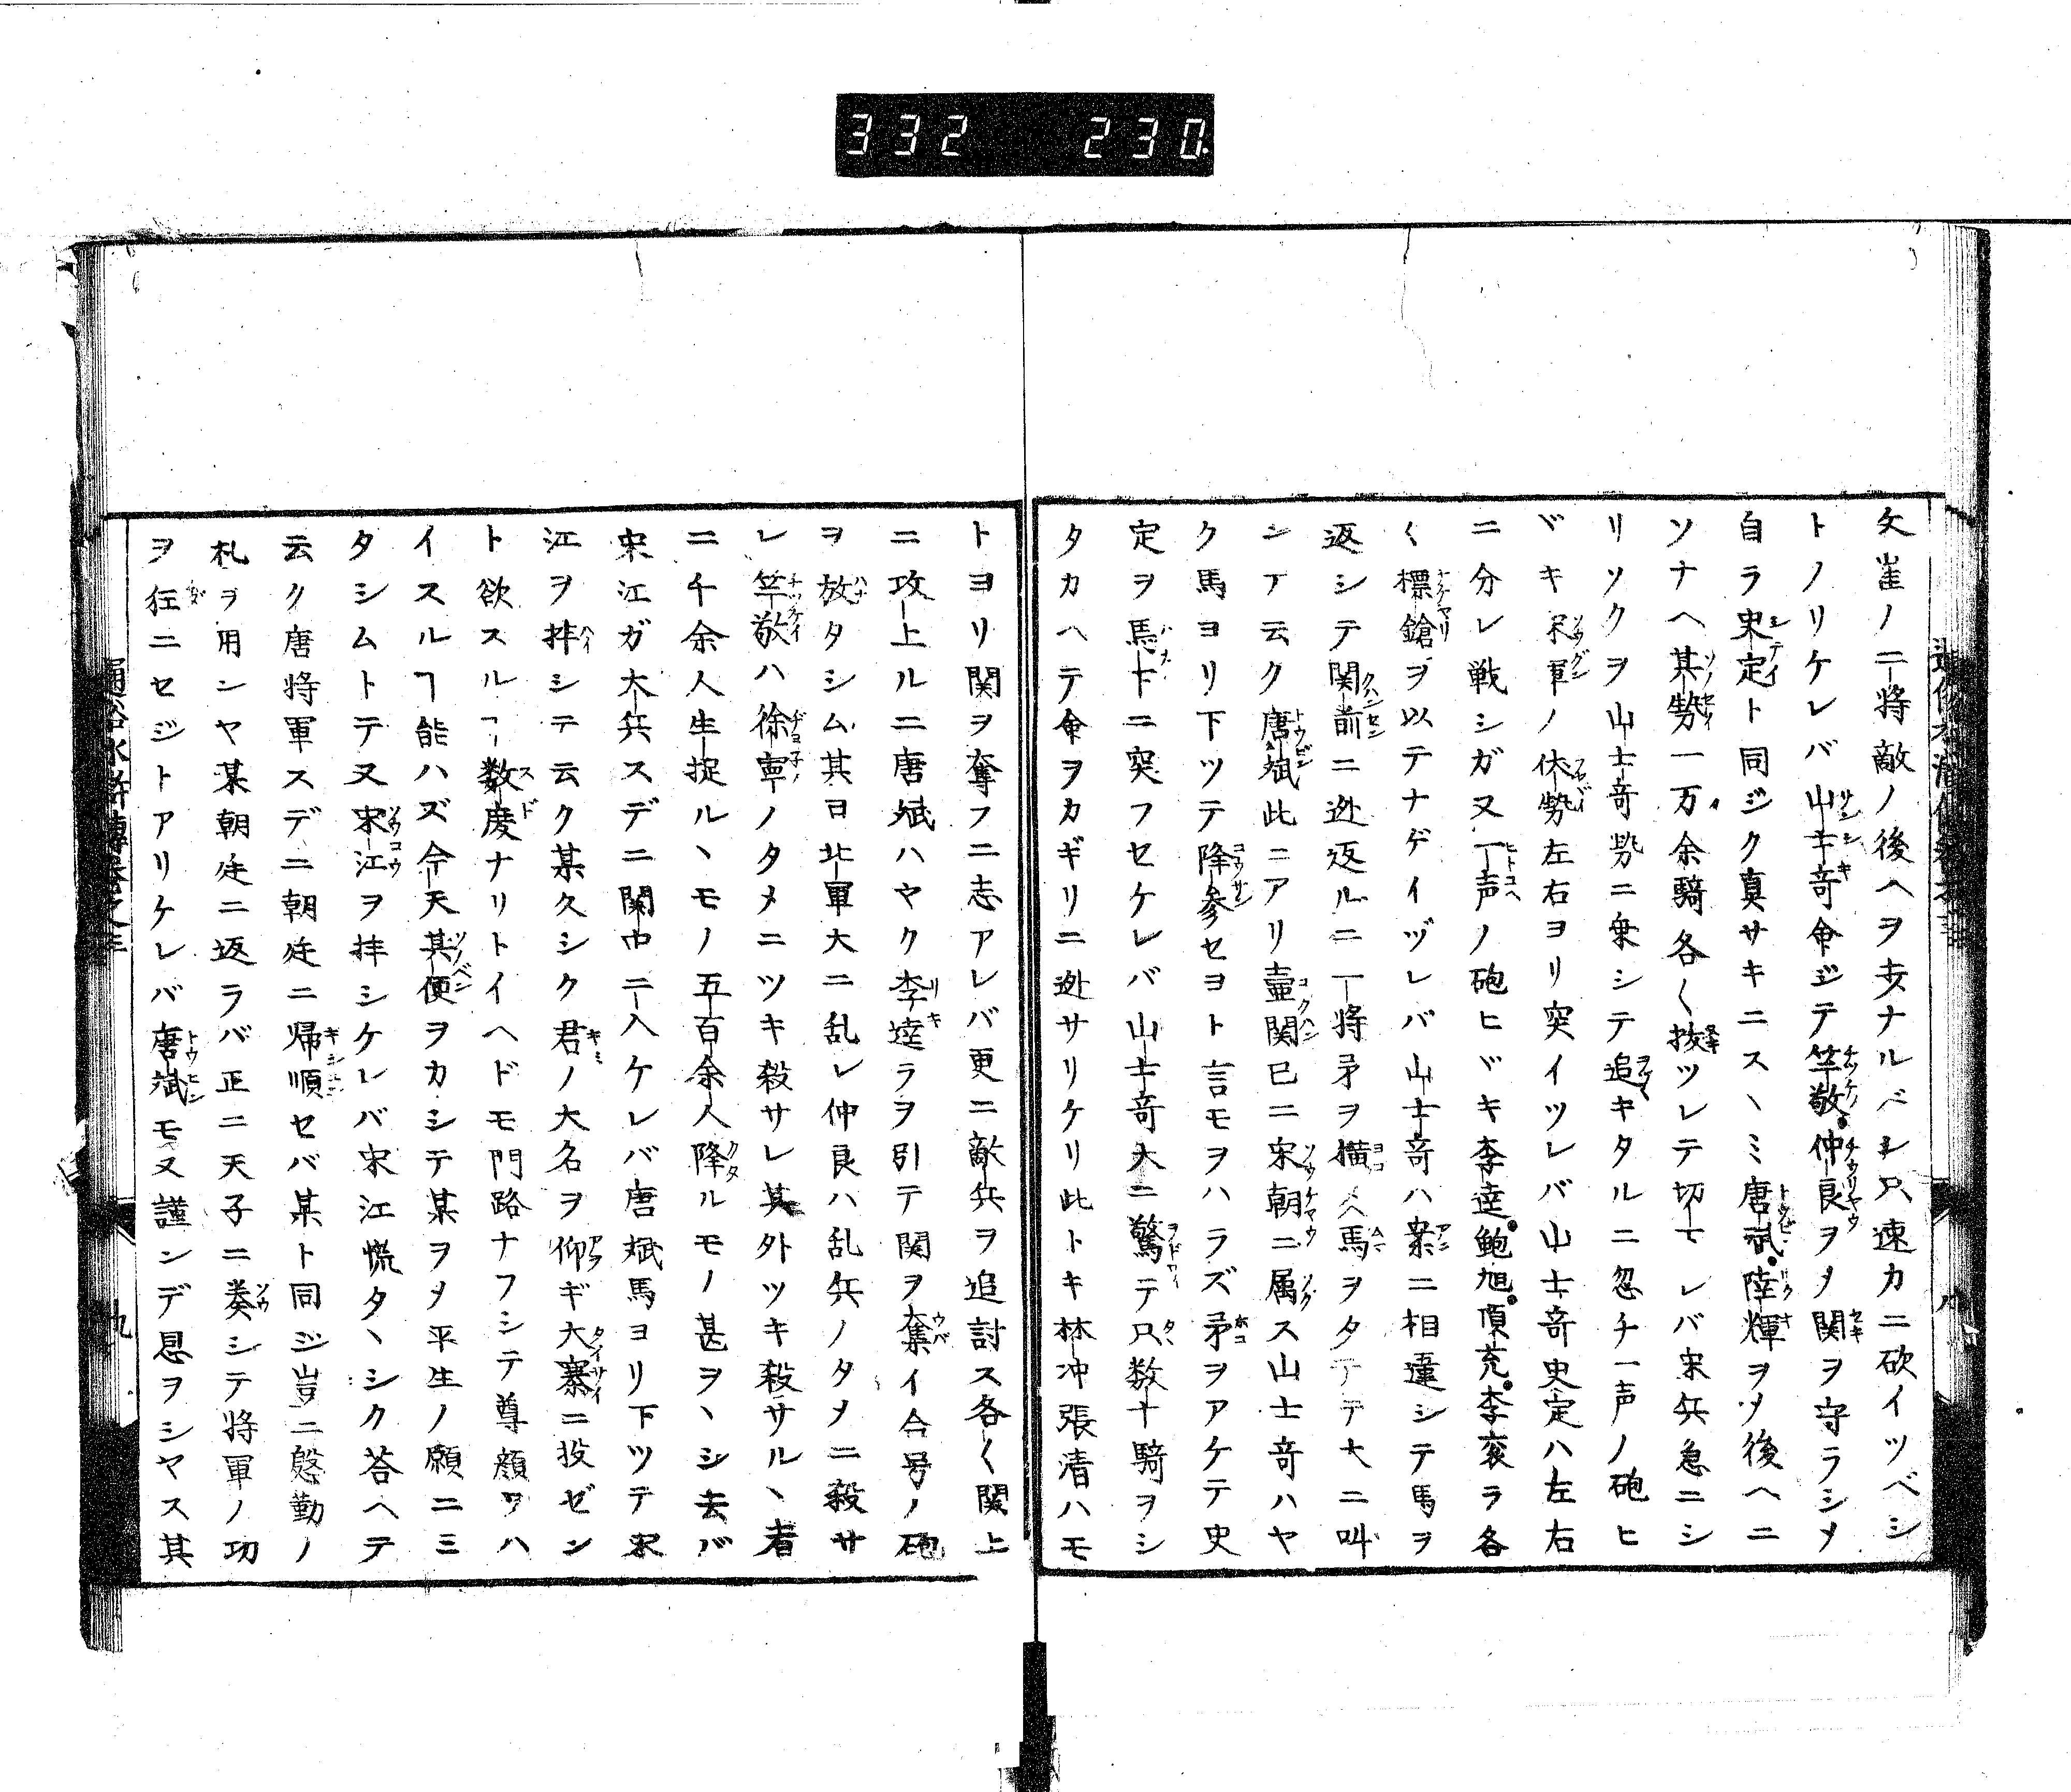 332 230
文崔ノ二将敵ノ後ヘヲ歩ナルベシ只速カニ砍イツベシ
トノリケレバ山士奇命ジテ竺敬仲良ヲメ関ヲ守ラシメ
自ラ史定ト同ジク真サキニスヽミ唐斌陸輝ヲメ後ヘニ
ソナヘ其勢一万余騎各〱抜ツレテ切テレバ宋兵急ニシ
リソクヲ山士奇勢ニ乗シテ追キタルニ忽チ一声ノ砲ヒ
ヾキ宋軍ノ伏勢左右ヨリ突イツレバ山士奇史定ハ左右
ニ分レ戦シガ又一声ノ砲ヒヾキ李逵鮑旭項充李袞ラ各
〱標鎗ヲ以テナゲイヅレバ山士奇ハ案ニ相違シテ馬ヲ
返シテ関前ニ迯返ルニ一将矛ヲ横ヘ馬ヲタテテ大ニ叫
シテ云ク唐斌此ニアリ壷関已ニ宋朝ニ属ス山士奇ハヤ
ク馬ヨリ下ツテ降参セヨト言モヲハラズ矛ヲアケテ史
定ヲ馬下ニ突フセケレバ山士奇大ニ驚テ只数十騎ヲシ
タカヘテ命ヲカギリニ迯サリケリ此トキ林冲張清ハモ
トヨリ関ヲ奪フニ志アレバ更ニ敵兵ヲ追討ス各〱関上
ニ攻上ルニ唐斌ハヤク李逵ラヲ引テ関ヲ奪イ合号ノ砲
ヲ放タシム其日北軍大ニ乱レ仲良ハ乱兵ノタメニ殺サ
レ竺敬ハ徐寧ノタメニツキ殺サレ其外ツキ殺サルヽ者
二千余人生捉ルヽモノ五百余人降ルモノ甚ヲヽシ去バ
宋江ガ大兵スデニ関中ニ入ケレバ唐斌馬ヨリ下ツテ宋
江ヲ拝シテ云ク某久シク君ノ大名ヲ仰ギ大寨ニ投ゼン
ト欲スルヿ数度ナリトイヘドモ門路ナフシテ尊顔ヲハ
イスルヿ能ハズ今天其便ヲカシテ某ヲメ平生ノ願ニミ
タシムトテ又宋江ヲ拝シケレバ宋江慌タヽシク答ヘテ
云ク唐将軍スデニ朝廷ニ帰順セバ某ト同ジ豈ニ慇勤ノ
札ヲ用ンヤ某朝廷ニ返ラバ正ニ天子ニ奏シテ将軍ノ功
ヲ徒ニセジトアリケレバ唐斌モ又謹ンデ恩ヲシヤス其
通俗水滸傳巻之三 九